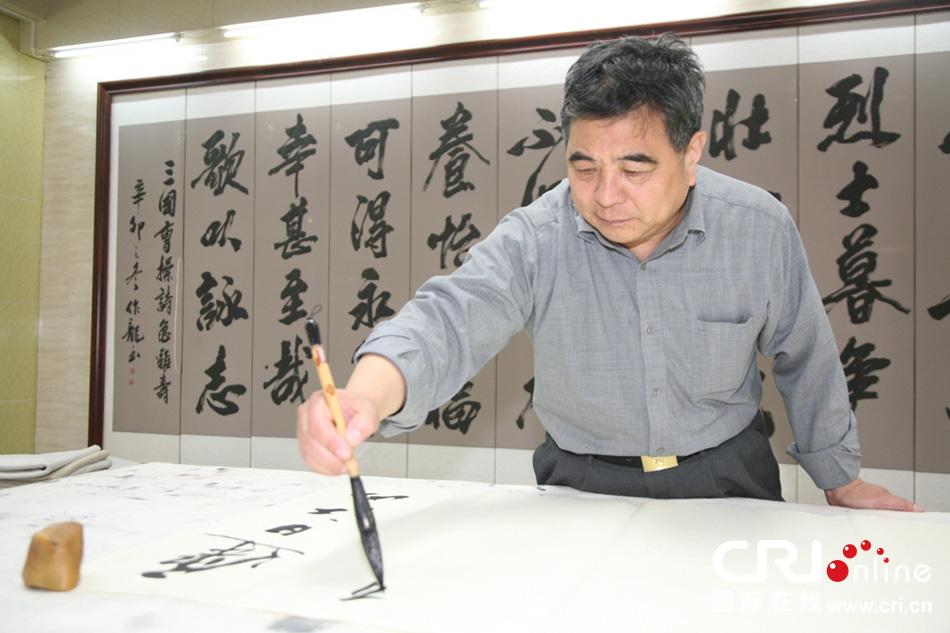 烈士暮年
壮
養怡
福
可得永
幸甚至哉
歌以詠志
三國曹操詩龜雖壽
辛卯之冬作龍书
CRI online
国际在线 www.cri.cn